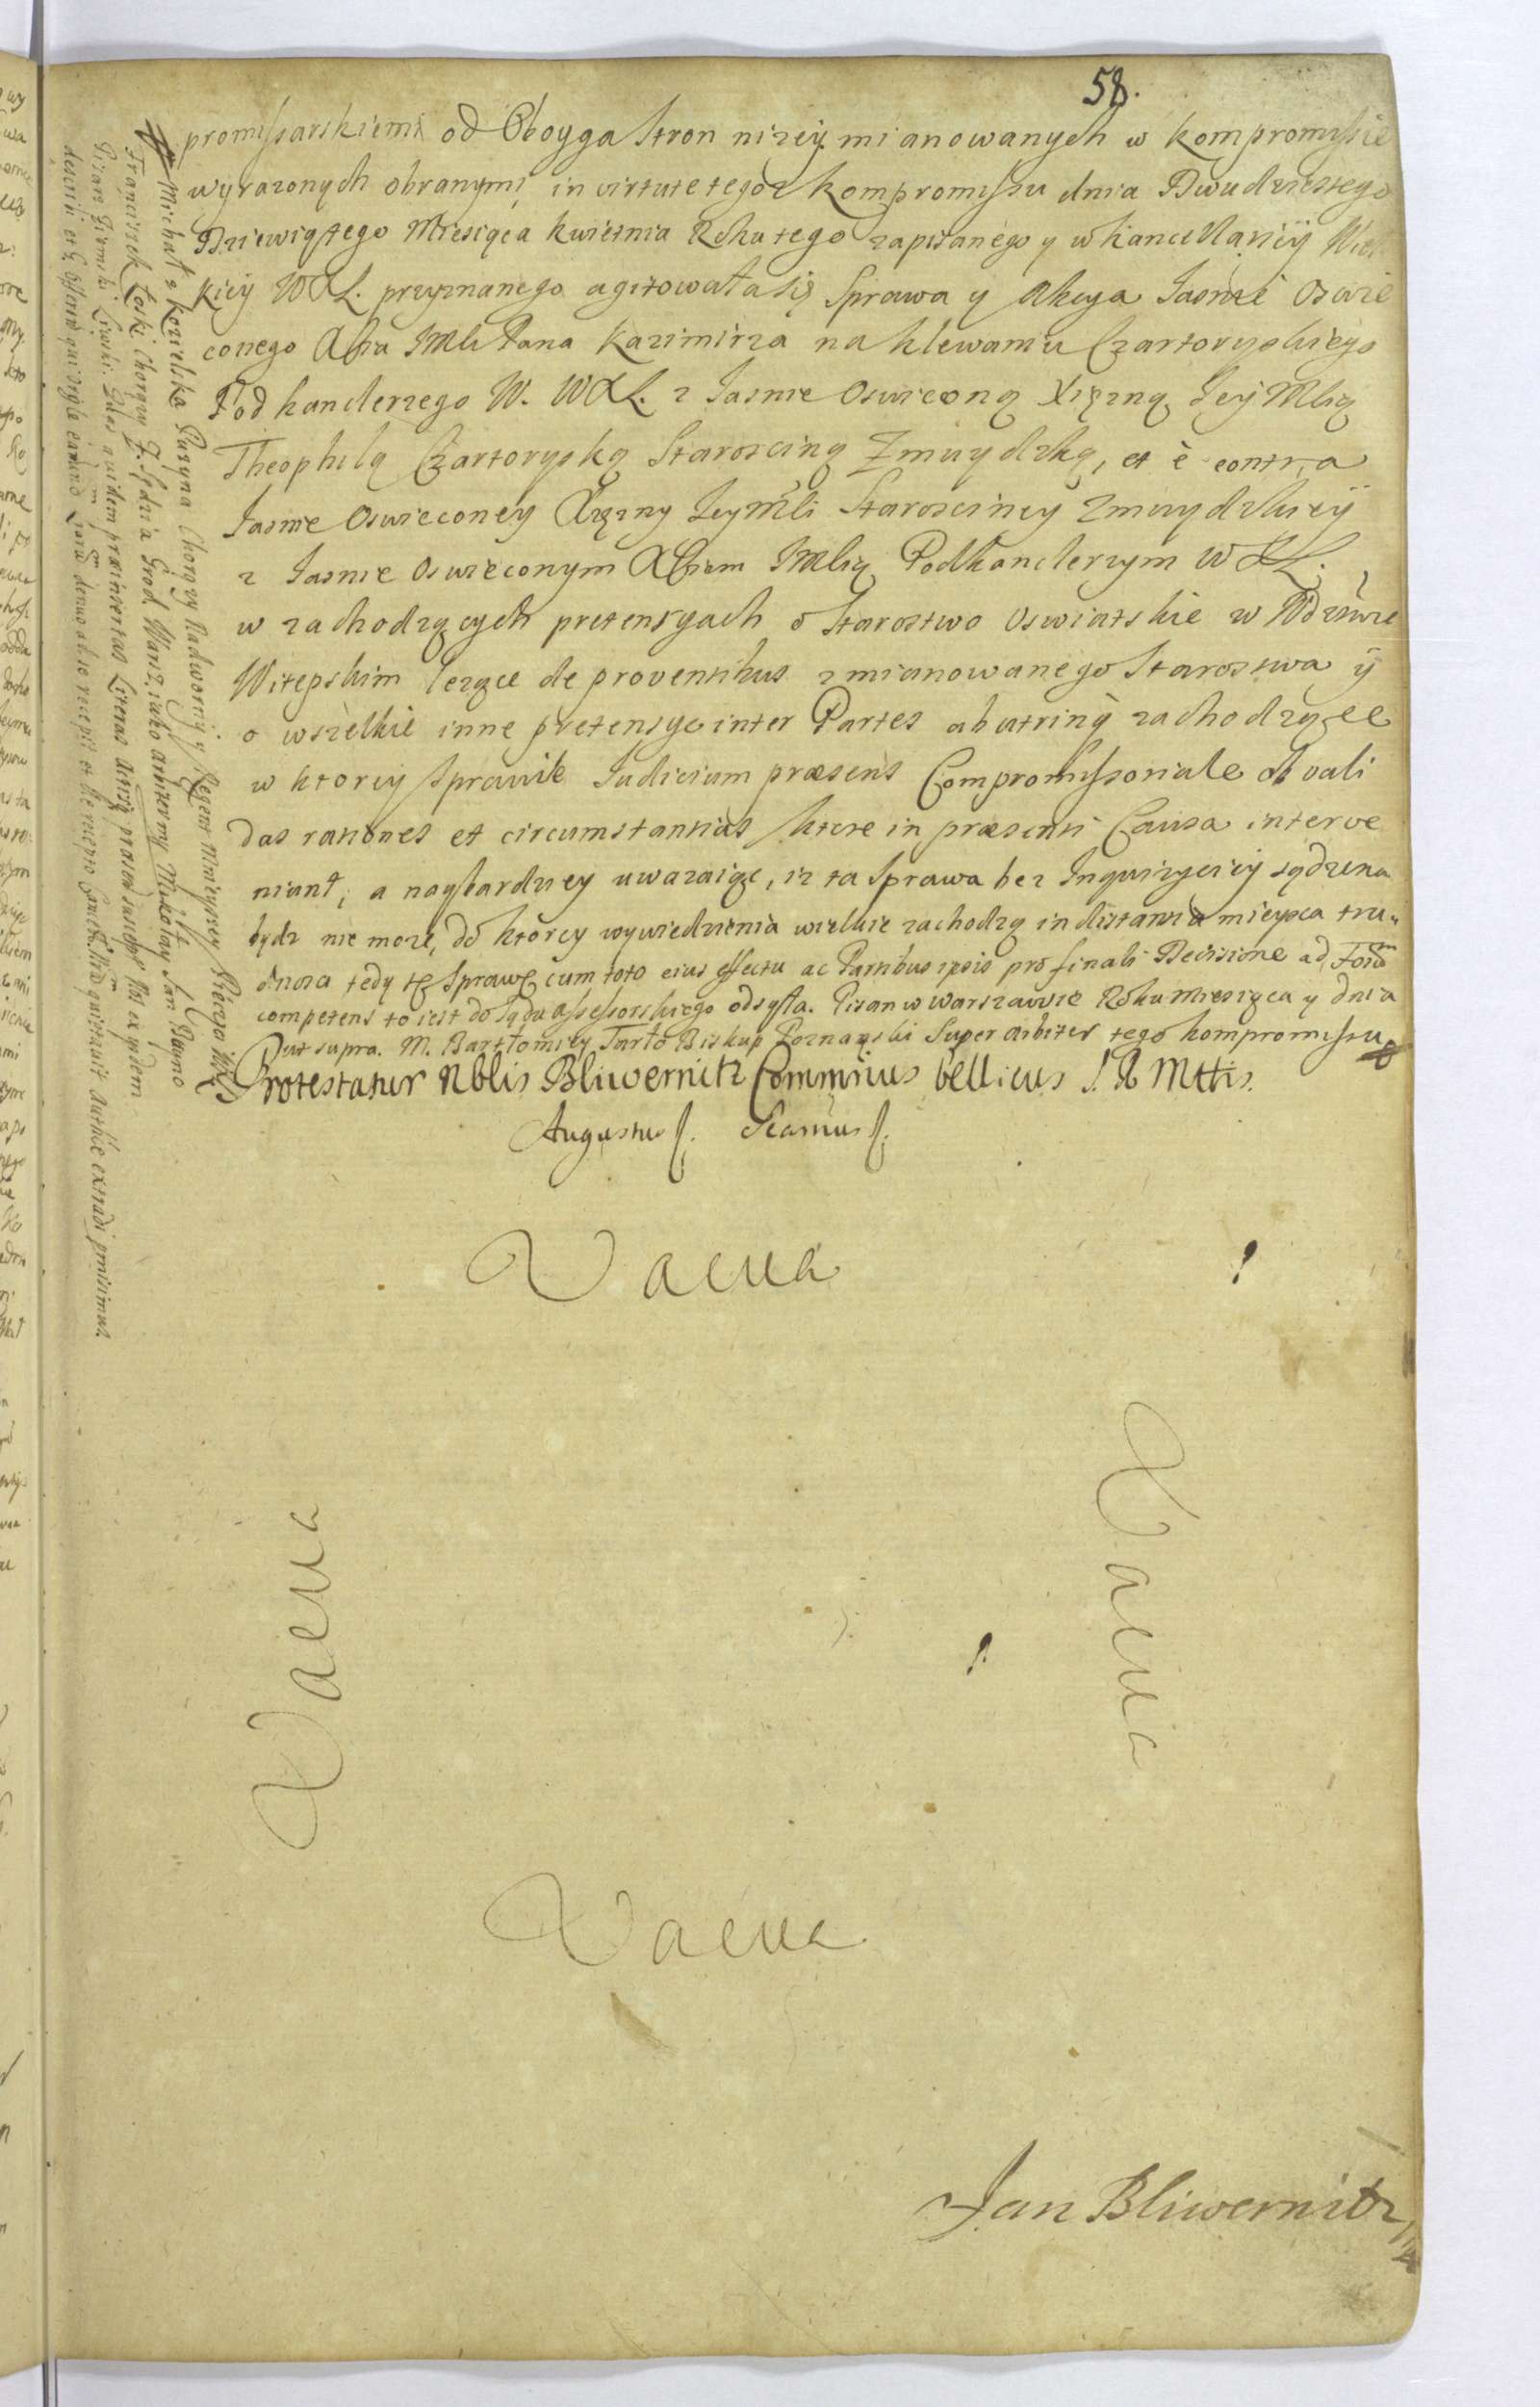 58.
promissarskiemi od Oboyga Stron niżey mianowanych w kompromissie
wyrazonych obranymi, in virtute tegoz kompromissu dnia Dwudziestego
Dziewiątego Miesiąca kwietnia Roku tego zapisanego y w kancellaryiy
kiey WXL. przyznanego agitowała się Sprawa y Akcya Jasnie Oswie
conego Xcia JMsci Pana Kazimirza na Klewaniu Czartoryskiego
Podkanclerzego W. WXL. z Jasnie Oswieconą Xiężną Jey Mscią
Theophilą Czartoryską Staroscing Zmuydzką, et è contra
Jasnie Oswieconey Xiężny Jeymsci Starosciney Zmuydzkiey
z Jasnie Oswieconym Xciem JMscią Podkanclerzym WXL.
w zachodzących pretensyach o Starostwo Oswiatskie w
Witepskim leząće de proventibus zmianowanego Starostwa y
o wszelkie inne pretensye inter Partes ab utrinq zachodząće
w ktorey sprawie Judicium præsens Compromissoriale ob vali
das rationes et circumstantias ktore in præsenti Causa interve
niant, a naybardziey uwazaiąc, iz ta Sprawa bez Inquizyciey sądzona
bydz nie moze, do ktorey wywiedzenia wielkie zachodzą in distantia mieysca tru
dnosci tedy tę Sprawę cum toto eius effectu ac Partibus ipsis pro finali Decisione ad Forũ
competens to iest do Sądu assessorskiego odsyła. Pisan w Warszawie Roku Miesiąca y dnia
ut supra. M. Bartłomiey Tarło Biskup Poznanski Super arbiter tego kompromissu
Michał z Kozielska Puzyna Chorązy Nadworny y Regent Mnieyszey
Franciszek Łoski Chorązy y Sędzia Grod Warsz. iako arbitrowie Mikołay Jan
Pisarz Ziemski Quas quidem præinsertas Literas
Protestatur Nblis Bliwernitz Commrius bellicus S. R Mttis.
Augustus Scamus
Vacua
Vacua
Vacua
Vacua
Jan Bliwernitz